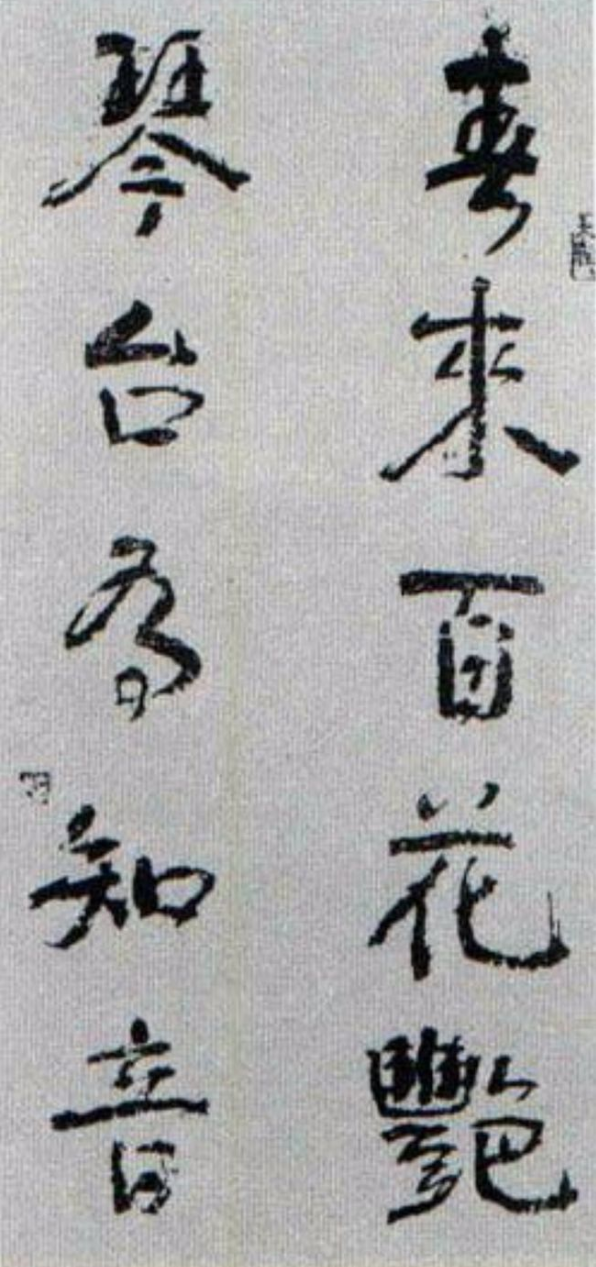 春來百花艷
琴台知音